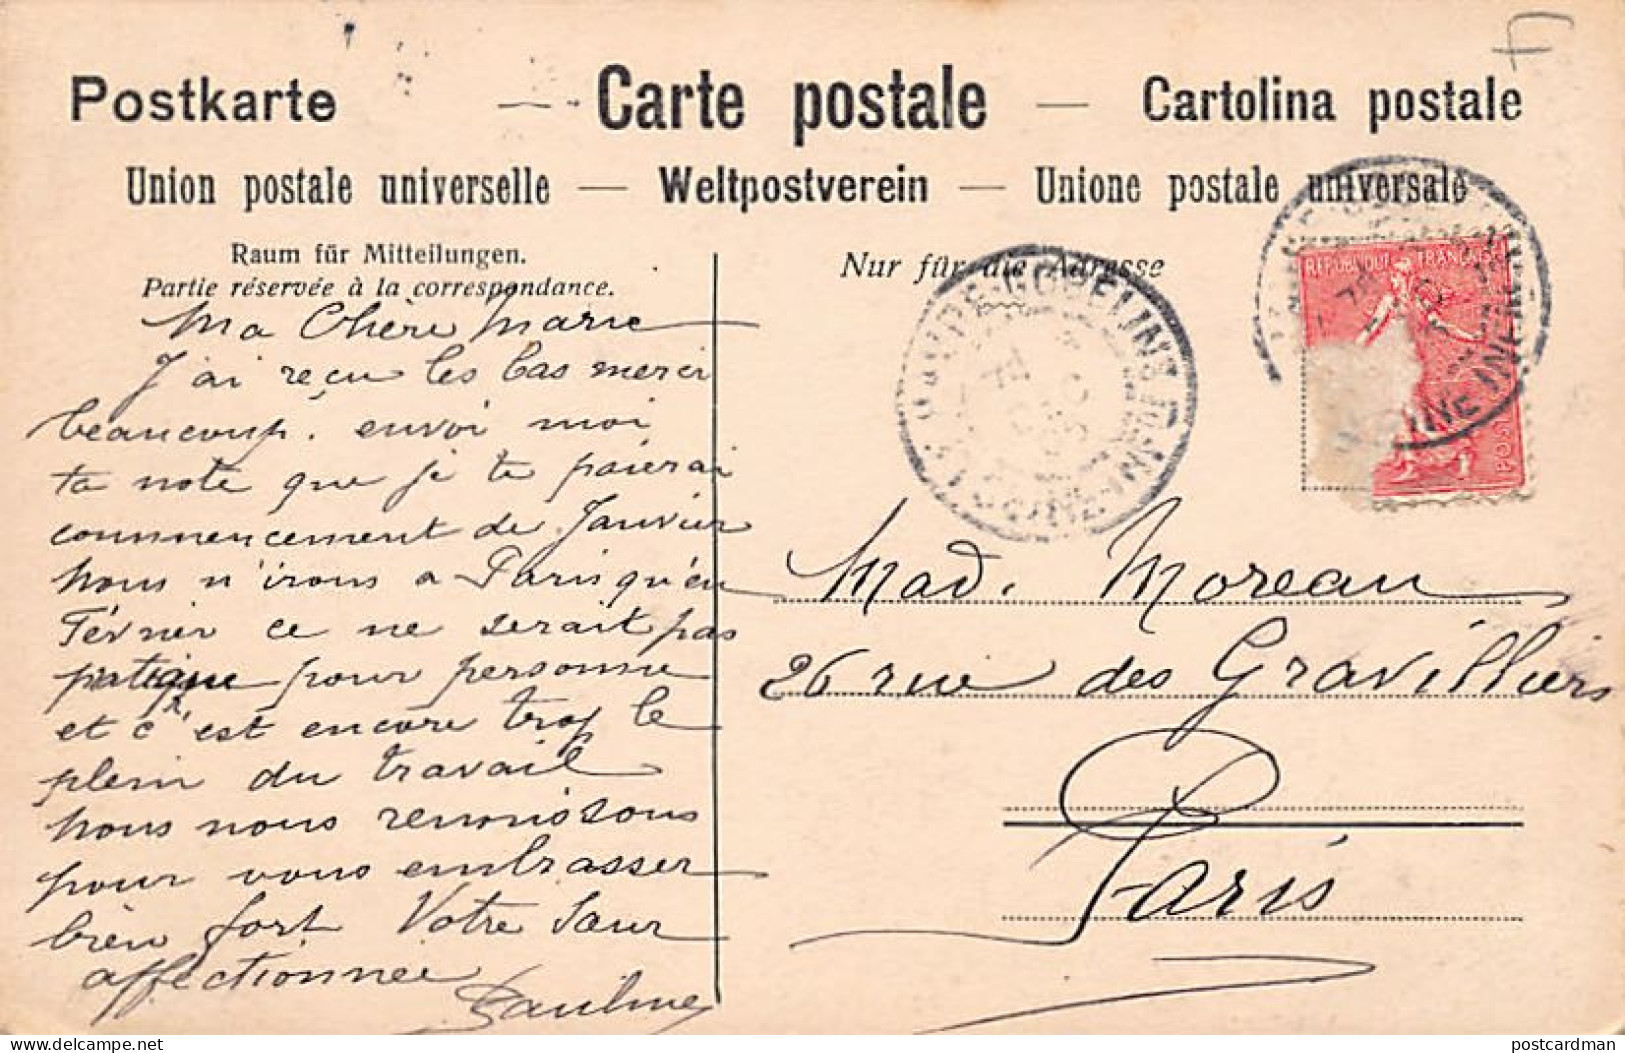 Postkarte — Carte postale — Cartolina postale
Union postale universelle — Weltpostverein — Unione postale universale
Raum für Mitteilungen.
Partie réservée à la correspondance.
Nur für die Adresse
REPUBLIQUE FRANÇAISE
Ma Chère Marie
J'ai reçu les bas merci
beaucoup. envoi moi
ta note que je te paierai
commencement de Janvier
nous n'irons a Paris qu'en
Février ce ne serait pas
pratique pour personne
et c'est encore trop le
plein du travail
nous nous remonissons
pour vous embrasser
bien fort Votre Sœur
affectionnée
Pauline
Mad. Moreau
26 rue des Gravilliers
Paris
delcampe.net
postcardman